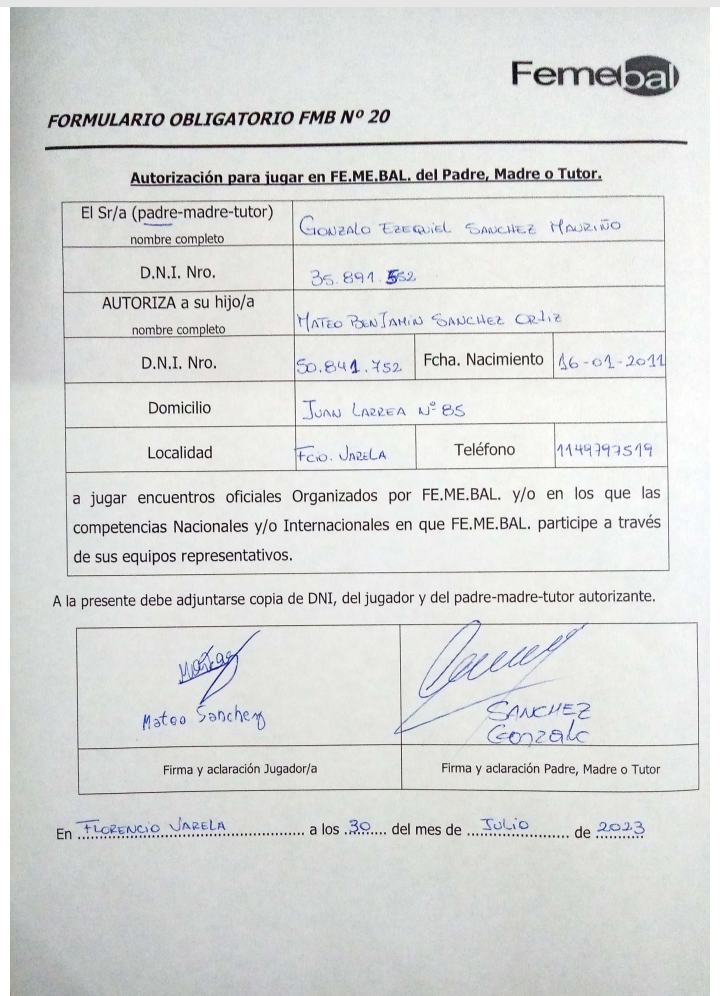 Femebal
FORMULARIO OBLIGATORIO FMB Nº 20
Autorización para jugar en FE.ME.BAL. del Padre, Madre o Tutor.
El Sr/a (padre-madre-tutor)
nombre completo
GONZALO EZEQUIEL SANCHEZ MAURIÑO
D.N.I. Nro.
35.891.552
AUTORIZA a su hijo/a
nombre completo
MATEO BENJAMIN SANCHEZ ORTIZ
D.N.I. Nro.
50.841.752
Fcha. Nacimiento
16-01-2011
Domicilio
JUAN LARREA Nº 85
Localidad
FCIO. VARELA
Teléfono
1149797519
a jugar encuentros oficiales Organizados por FE.ME.BAL. y/o en los que las
competencias Nacionales y/o Internacionales en que FE.ME.BAL. participe a través
de sus equipos representativos.
A la presente debe adjuntarse copia de DNI, del jugador y del padre-madre-tutor autorizante.
Mateo Sanchez
SANCHEZ
Gonzalo
Firma y aclaración Jugador/a
Firma y aclaración Padre, Madre o Tutor
En FLORENCIO VARELA a los 30 del mes de JULIO de 2023